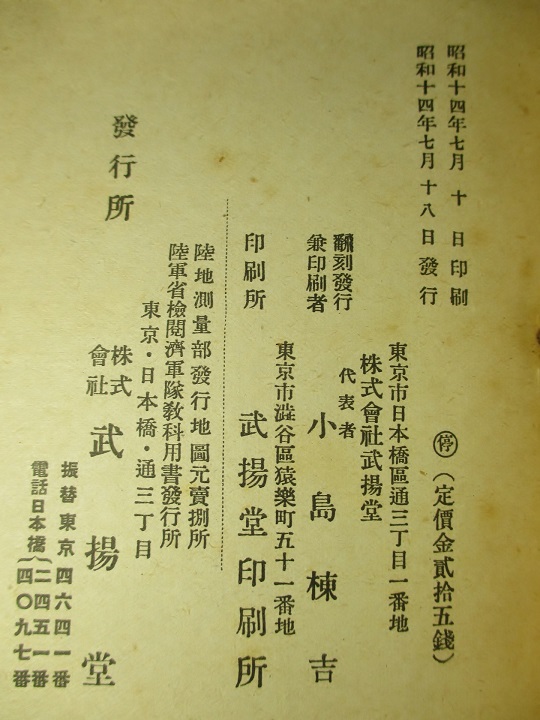 昭和十四年七月十日印刷
昭和十四年七月十八日發行
㊡(定價金貳拾五錢)
東京市日本橋區通三丁目一番地
株式會社武揚堂
代表者
小島棟吉
飜刻發行
兼印刷者
東京市澁谷區猿樂町五十一番地
印刷所 武揚堂印刷所
陸地測量部發行地圖元賣捌所
陸軍省檢閱濟軍隊敎科用書發行所
東京・日本橋・通三丁目
發行所 株式會社 武揚堂
振替東京四六四一番
電話日本橋(二四五一番
(四〇九七番